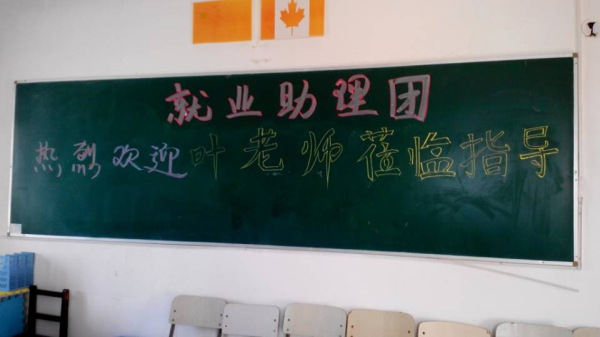 就业助理团
热烈欢迎叶老师莅临指导